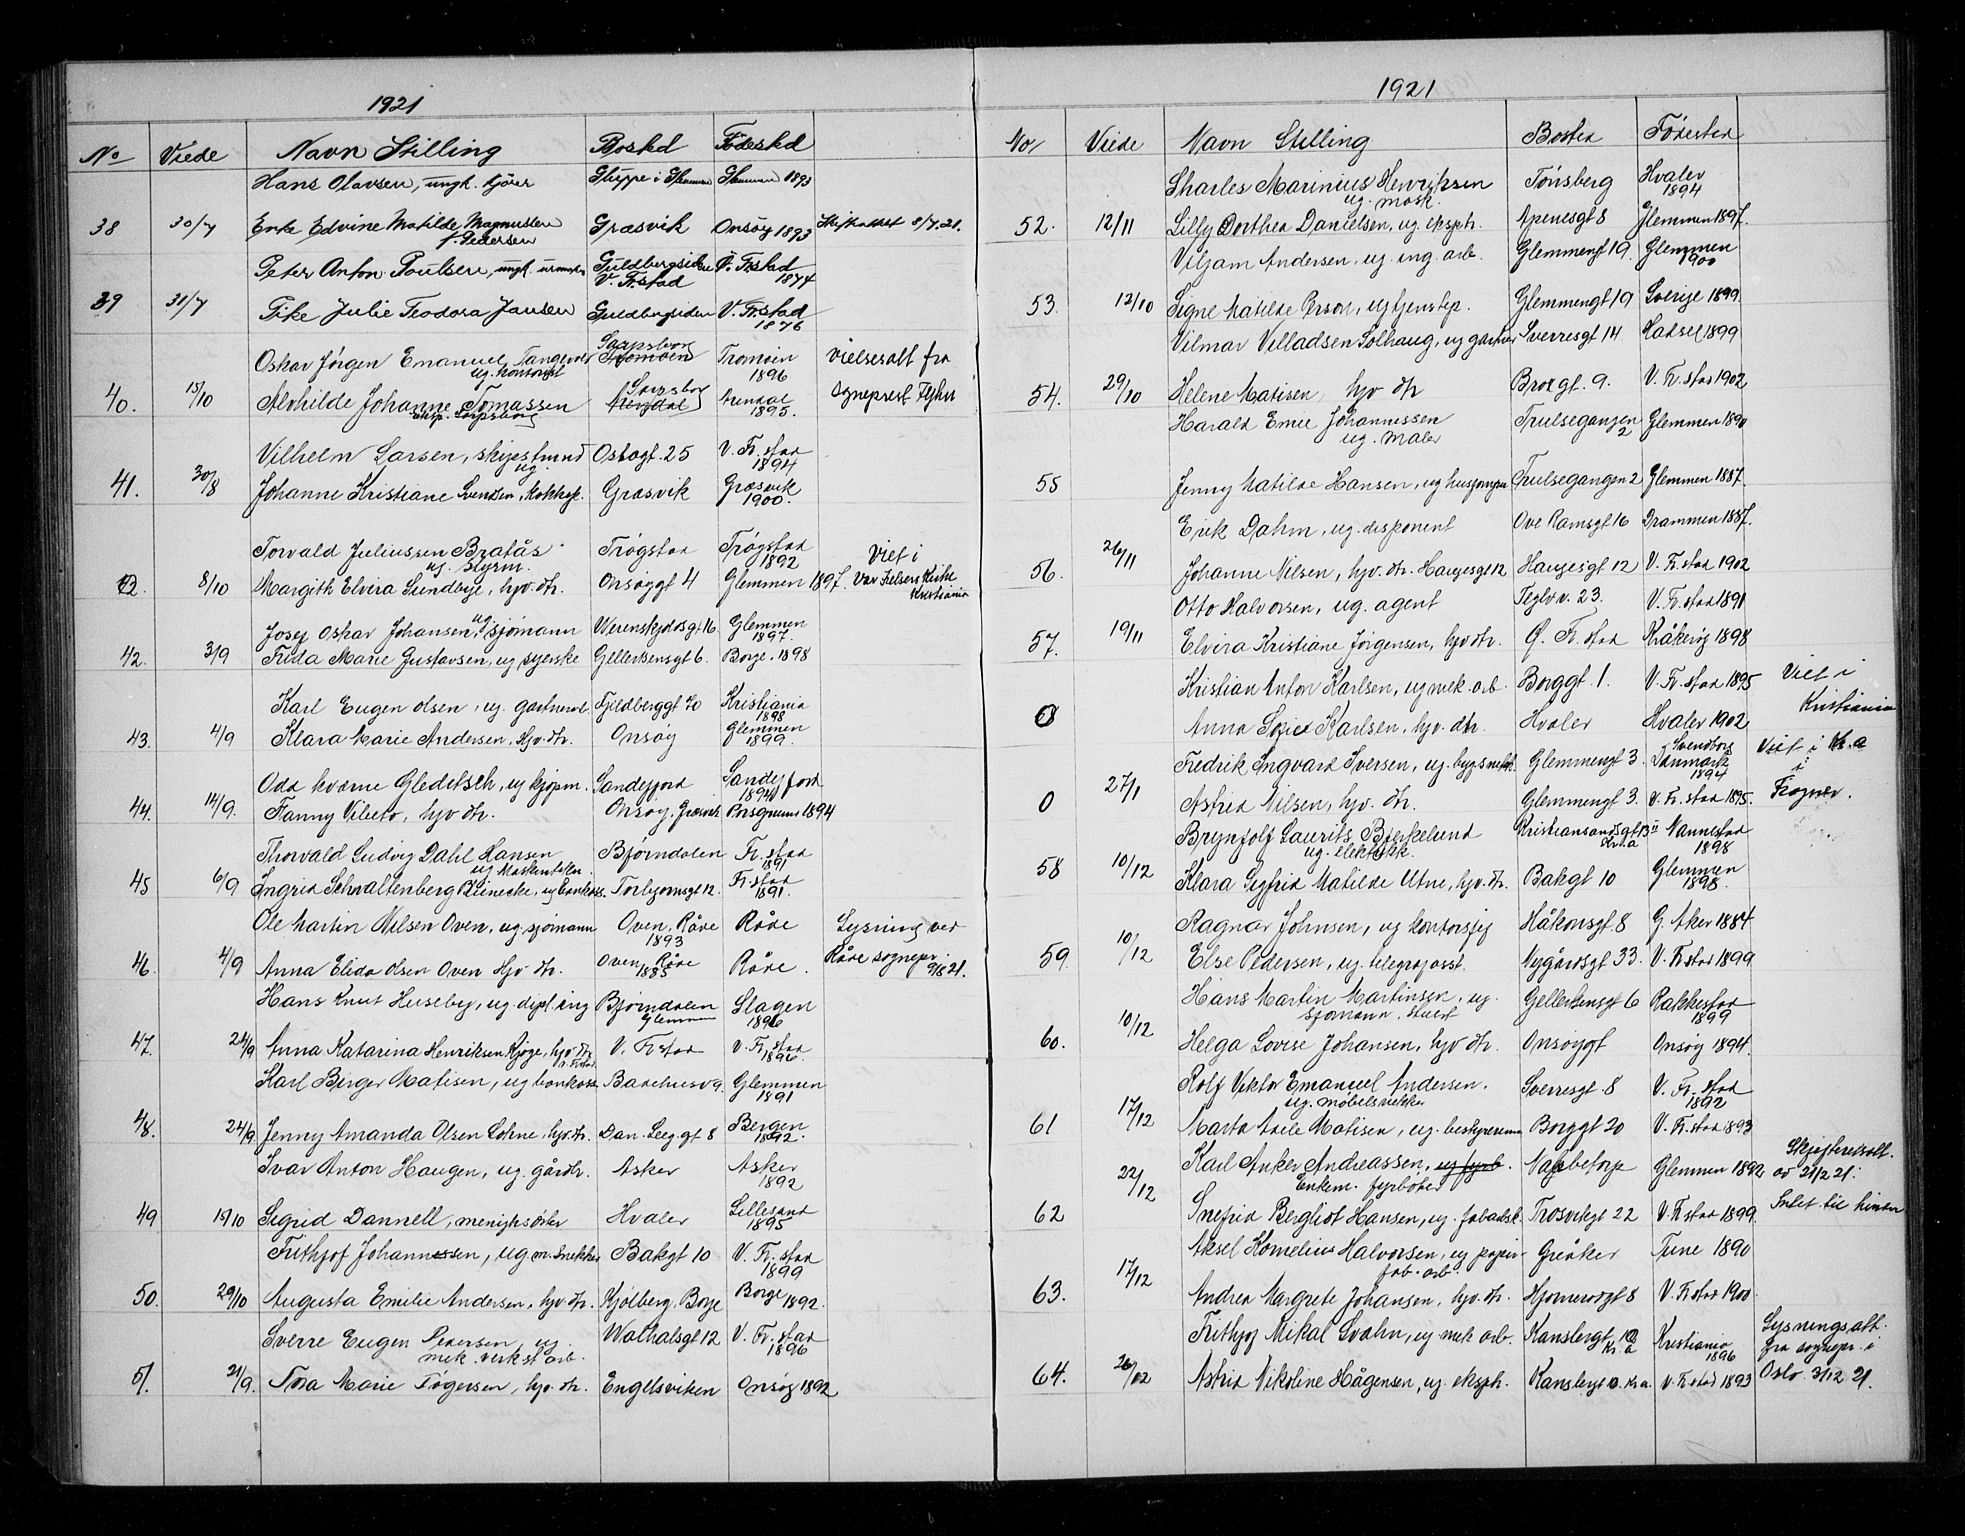 1921
No Viede Navn Stilling Bosted Födested
Hans Olavsen, ungk. kjører Glemmen 1893
38 30/7 Enke Edvine Matilde Magnussen Græsvik Onsøy 1893 Skifteattest 8/7.21.
f. Pedersen
Peter Anton Poulsen, ungk. urmaker Guldbergsiden Ø. Frstad
V. Frstad 1874
39 31/7 Pike Julie Teodora Jansen Guldbergsiden V. Frstad
1876
Oskar Jörgen Emanuel Tangevol Sarpsborg Tromøen Tromöin Vielsesatt fra
ug. kontorist 1896
40. 15/10 Alvhilde Johanne Tomassen Sarpsborg Arendal Arendal Sogneprest
eksp. Sarpsborg 1895.
Vilhelm Larsen, skipstmnd Ostogt. 25 V. Fr.stad
ug. 1894
41. 30/8 Johanne Kristiane Svendsen, kokkep. Græsvik Græsvik
1900.
Torvald Juliussen Bratås Trøgstad Trøgstad Viet i
ug. styrm. 1892
8/10 Margith Elvira Sundbye, hjv. dtr. Onsøygt 4 Glemmen 1897. Vor Frelsers Kirke
Kristiania
Josef Oskar Johansen, ug. sjømann Werenskjoldsgt 16 Glemmen
1897.
42. 3/9 Frida Marie Gustavsen, ug syerske Gellertsensgt 6. Borge. 1898
Karl Eugen Olsen, ug. gartnerarb. Fjeldberggt 70 Kristiania
1898
43. 4/9 Klara Marie Andersen, Hjv. dtr. Onsøy Glemmen
1899.
Odd Kværne Gleditsch, ug kjøpm. Sandefjord Sandefjord
1894
44. 14/9. Fanny Vibeto, hjv dtr. Onsøy, Græsvik Porsgrund 1894
Thorvald Ludvig Dahl Hansen Bjørndalen Fr.stad
ug Maskintekn. 1891
45 6/9 Ingrid Schwaltenberg Reinecke, ug bankass. Torbjornsgt 12. Fr.stad
1891.
Ole Martin Nilsen Oven, ug. sjömann Oven, Råde Råde Lysning ved
1893
46. 4/9 Anna Elida Olsen Oven Hjv dtr. Oven Råde Råde. Råde sognepr
1885 9/8 21.
Hans Knut Huseby, ug. dipl. ing Bjørndalen Slagen
Glemmen 1896
47. 24/9 Anna Katarina Henriksen Kjøge, hjv. dtr. V. Frstad V. Fr. stad
1896.
Karl Birger Matisen, ug bankass. Glemmen
1891
48. 24/9. Jenny Amanda Olsen Lohne, hjv. dtr. Dan. Leeg. gt 8 Bergen
1892.
Ivar Anton Haugen, ug. gårdbr. Asker Asker
1892
49 15/10 Sigrid Dannell, menighsöster Hvaler Lillesand
1895
Frithjof Johannessen, ug m. snekker Bakgt 10 V. Fr. stad
1899
50. 29/10 Augusta Emilie Andersen, hjv. dtr. Kjölberg, Borge Borge 1892.
Sverre Eugen Pedersen, ug Walhalsgt 12 V. Fr. stad
mek. verkst arb. 1896
51. 21/9. Tora Marie Tögersen, hjv. dtr. Engelsviken Onsøy 1892
1921
No Viede Navn Stilling Bosted Fødested
Sharles Marinius Henriksen Tönsberg Hvaler
ug. mask. 1894
52. 12/11 Lilly Dorthea Danielsen, ug. eksph. Apenesgt 8 Glemmen 1897.
Viljam Andersen, ug. ing. arb. Glemmengt 19. Glemmen
1900
53. 12/10 Signe Matilde Person, ug tjenstep. Glemmengt 19 Sverige 1899
Vilmar Villadsen Solhaug, ug gartner Sverresgt 14 Hadsel 1899
54. 29/10 Helene Matisen, hjv dtr Brogt. 9. V. Fr. stad 1902
Harald Emil Johannessen Trulsegangen Glemmen 1890
ug. maler 2
55 Jenny Matilde Hansen, ug husjomfru Trulsegangen 2 Glemmen 1887.
Erik Dahm, ug. disponent Ove Ramsgt 16 Drammen 1887.
56. 26/11 Johanne Nilsen, hjv. dtr. Haugesgt 12 Haugesgt 12 V. Fr. stad 1902
Otto Halvorsen, ug. agent Teglvv. 23. V. Fr. stad 1891
57. 19/11 Elvira Kristiane Jörgensen, hjv dtr. Ø. Fr. stad Kråkerøy 1898
Kristian Anton Karlsen, ug mek. arb. Borggt. 1. V. Fr. stad 1895 Viet i
0 Anna Sofie Karlsen, hjv. dtr. Hvaler Hvaler 1902 Kristiania
Fredrik Ingvard Iversen, ug. bygsnekk. Glemmengt 3. Svendborg Danmark Viet i Kr.a
1894 i
0 27/1 Astrid Nilsen, hjv. dtr. Glemmengt 3. V. Fr. stad 1895. Frogner.
Brynjolf Laurits Bjerkelund Kristiansandsgt 13 II Nannestad
ug. elektrikk. Kr.a 1898
58 10/12 Klara Sigfrid Matilde Utne, hjv. dtr. Bakgt 10 Glemmen
1898.
Ragnar Johnsen, ug kontorsjef Håkonsgt. 8 G. Aker 1884
59 10/12 Else Pedersen, ug. telegrafasst. Nygårdsgt 33. V. Fr stad 1899
Hans Martin Martinsen, ug. Gellertsensgt 6 Rakkestad
sjømann, stuert 1899
60. 10/12 Helga Lovise Johansen, hjv dtr. Onsøygt Onsøy 1894.
Rolf Viktor Emanuel Andersen. Sverresgt. 8 V. Fr. stad
ug. møbelsnekker 1892
61 17/12 Marta Adele Matisen, ug. bestyrerinne Borggt 20 V. Fr. stad 1893
Karl Anker Andreassen, ug fyrb. Nabbetorp Glemmen 1892 Skifteretsatt.
Enkem. fyrbøter av 21/12 21.
62 22/12 Snefrid Bergliot Hansen, ug. fabadsk. Trosvikgt 22 V. Fr stad 1899 Intet til hinder
Aksel Kornelius Halvorsen, ug papir Greåker Tune 1890
fab. arb.
63. 17/12 Andrea Margrete Johansen, hjv. dtr. Hjornerødgt 8 V. Fr stad 1900.
Frithjof Mikal Svahn, ug mek arb. Kansleregt 10 Kr.a Kristiania Lysningsatt.
1896 fra sognepr. i
64. 26/12 Astrid Nikoline Hågensen, ug. eksph. Kanslergt 10. Kr.a. V. Fr stad 1893 Oslo 3/12 21.